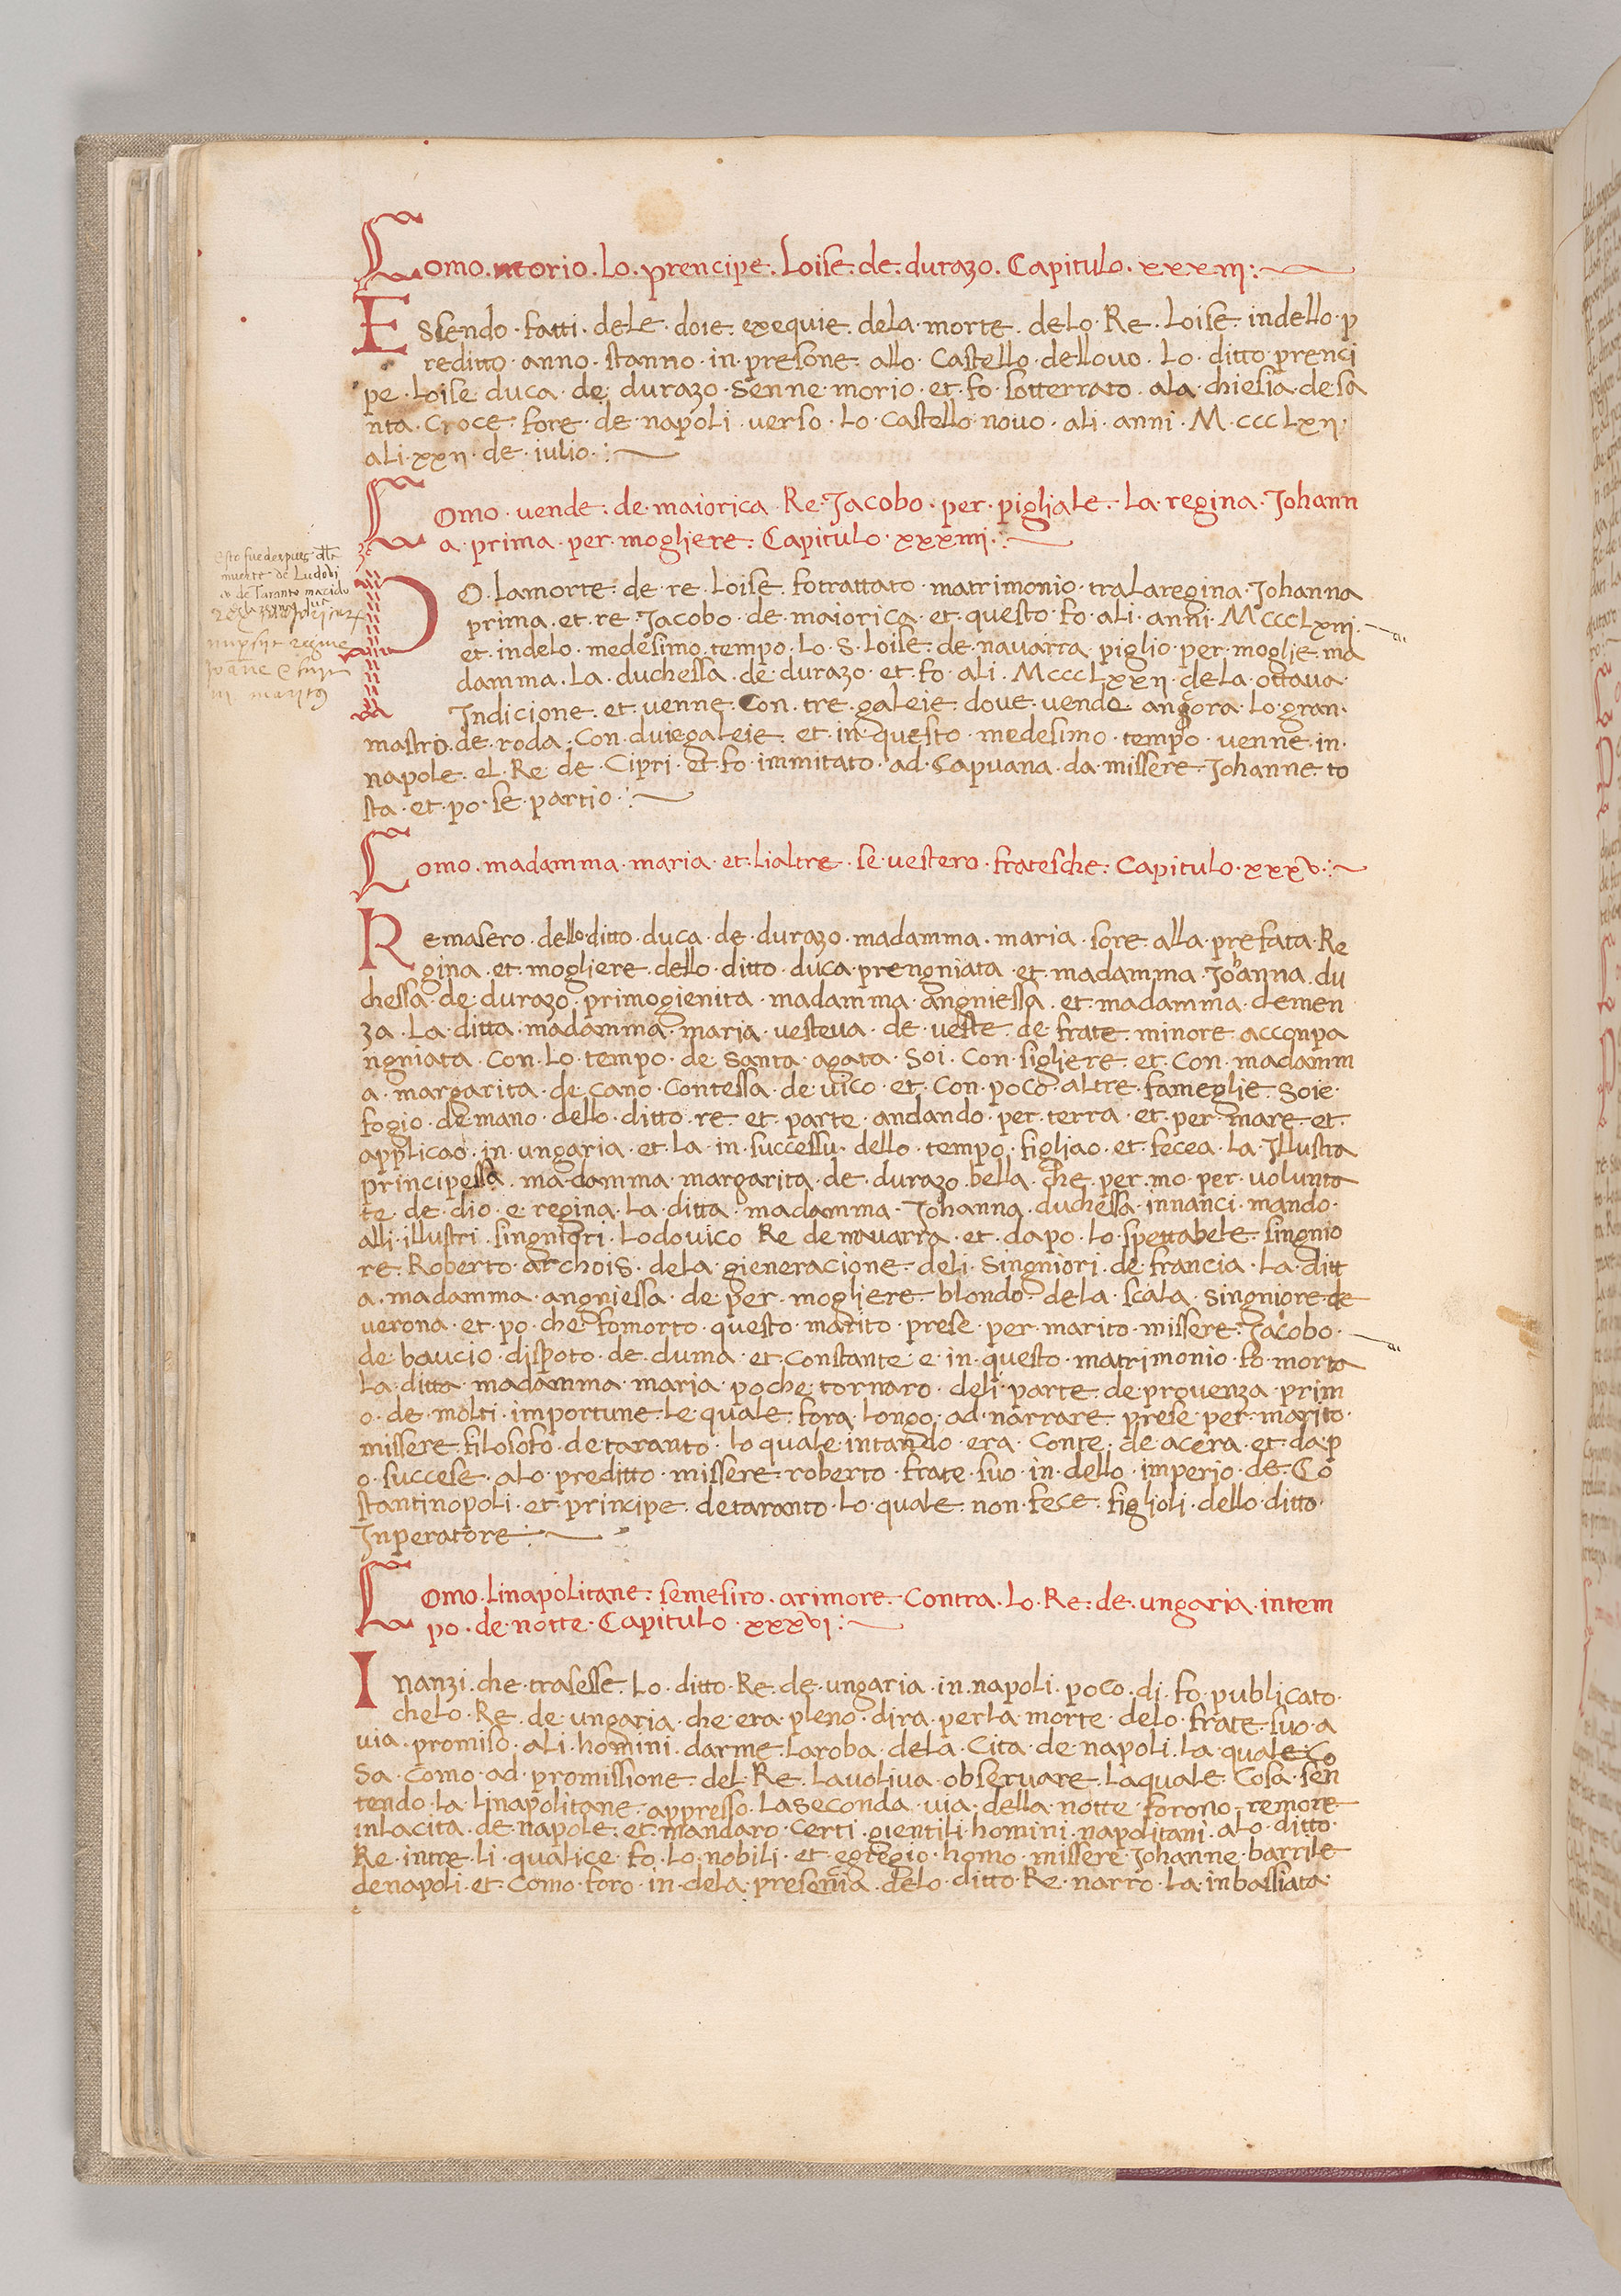 Como. morio. lo. prencipe. Loise. de. durazo. Capitulo. xxxiii:
Essendo. fatti. dele. doie. exequie. dela. morte. delo. Re. Loise. indello. p
reditto. anno. stanno. in. presone. allo. Castello. dellouo. lo. ditto. prenci
pe. Loise duca. de. durazo. Senne. morio. et. fo. sotterrato. ala. chiesia. de sa
nta. Croce. fore. de. napoli. verso. lo. Castello. nouo. ali. anni. M. ccclxii.
ali. xxii. de. iulio.:
Como. vende. de. maiorica. Re. Jacobo. per. pigliale. la. regina. Johann
a. prima. per. mogliere. Capitulo. xxxiiii.:
Esto fue despues dla
muerte de Ludobi
co de Taranto marido
nupsit regine
Joanne e fuit
iii maritus
PO. lamorte. de. re. Loise. fo trattato. matrimonio. tra laregina. Johanna
prima. et. re. Jacobo. de. maiorica. et. questo. fo. ali. anni. Mccclxiii.
et. indelo. medesimo. tempo. lo. S. Loise. de. nauarra. piglio. per. moglie. ma
damma. la. duchessa. de. durazo. et. fo. ali. Mccclxxii. dela. ottaua.
Indicione. et. venne. Con. tre. galeie. doue. vende. angora. lo. gran.
mastro. de. roda. Con. duiegaleie. et. in. questo. medesimo. tempo. venne. in.
napole. el. Re. de. Cipri. et. fo. immitato. ad. Capuana. da. missere. Johanne. to
sta. et. po. se. partio.:
Como. madamma. maria. et. lialtre. se. vestero. fratesche. Capitulo. xxxv.:
Remasero. dello. ditto. duca. de. durazo. madamma. maria. sore. alla. prefata. Re
gina. et. mogliere. dello. ditto. duca. prengniata. et. madamma. Johanna. du
chessa. de. durazo. primogienita. madamma. angniessa. et. madamma. clemen
za. la. ditta. madamma. maria. vesteua. de. veste. de. frate. minore. acconpa
ngniata. Con. lo. tempo. de. Santa. agata. Soi. Con. sigliere. et. Con. madamm
a. margarita. de. cano. Contessa. de. vico. et. Con. poco. altre. fameglie. Soie.
fogio. demano. dello. ditto. re. et. parte. andando. per. terra. et. per. mare. et.
applicao. in. ungaria. et. la. in. successu. dello. tempo. figliao. et. fecea. la. Illustra
principessa. madamma. margarita. de. durazo. bella. che. per. mo. per. volunta
te. de. dio. e. regina. la. ditta. madamma. Johanna. duchessa. innanci. mando.
alli. illustri. singniori. Lodouico. Re. de nauarra. et. dapo. lo. spettabele. singnio
re. Roberto. archois. dela. gieneracione. deli. Singniori. de. francia. la. ditt
a. madamma. angniessa. de. per. mogliere. blondo. dela. scala. Singniore. de
verona. et. po. che. fomorto. questo. marito. prese. per. marito. missere. Jacobo.
de. baucio. dispoto. de. duma. et. Constante. e. in. questo. matrimonio. fo. morta
la. ditta. madamma. maria. poche. tornaro. deli. parte. de. prouenza. prim
o. de. molti. importune. le. quale. fora. longo. ad. narrare. prese. per. marito.
missere. filosofo. de taranto. lo quale. intando. era. Conte. de. acera. et. dap
o. succese. alo. preditto. missere. roberto. frate. suo. in. dello. imperio. de. Co
stantinopoli. et. principe. detaranto. lo. quale. non. fece. figlioli. dello. ditto.
Inperatore:
Como. linapolitane. semesiro. arimore. Contra. lo. Re. de. ungaria. intem
po. de. notte. Capitulo. xxxvi:
Inanzi. che. trasesse. lo. ditto. Re. de. ungaria. in. napoli. poco. di. fo. publicato.
chelo. Re. de. ungaria. che. era. pleno. dira. perla. morte. delo. frate. suo. a
uia. promiso. ali. homini. darme. laroba. dela. Cita. de. napoli. la. quale. Co
Sa. Como. ad. promissione. del. Re. lavoliua. obseruare. laquale. Cosa. sen
tendo. la. linapolitane. appresso. laseconda. via. della. notte. forono. remore
inlacita. de. napole. et. mandaro. Certi. gientili. homini. napolitani. alo. ditto.
Re. intre. li. qualice. fo. lo. nobili. et. egregio. homo. missere. Johanne. barrile
denapoli. et. Como. foro. in. dela. presenia. delo. ditto. Re. narro. la. inbassiata.